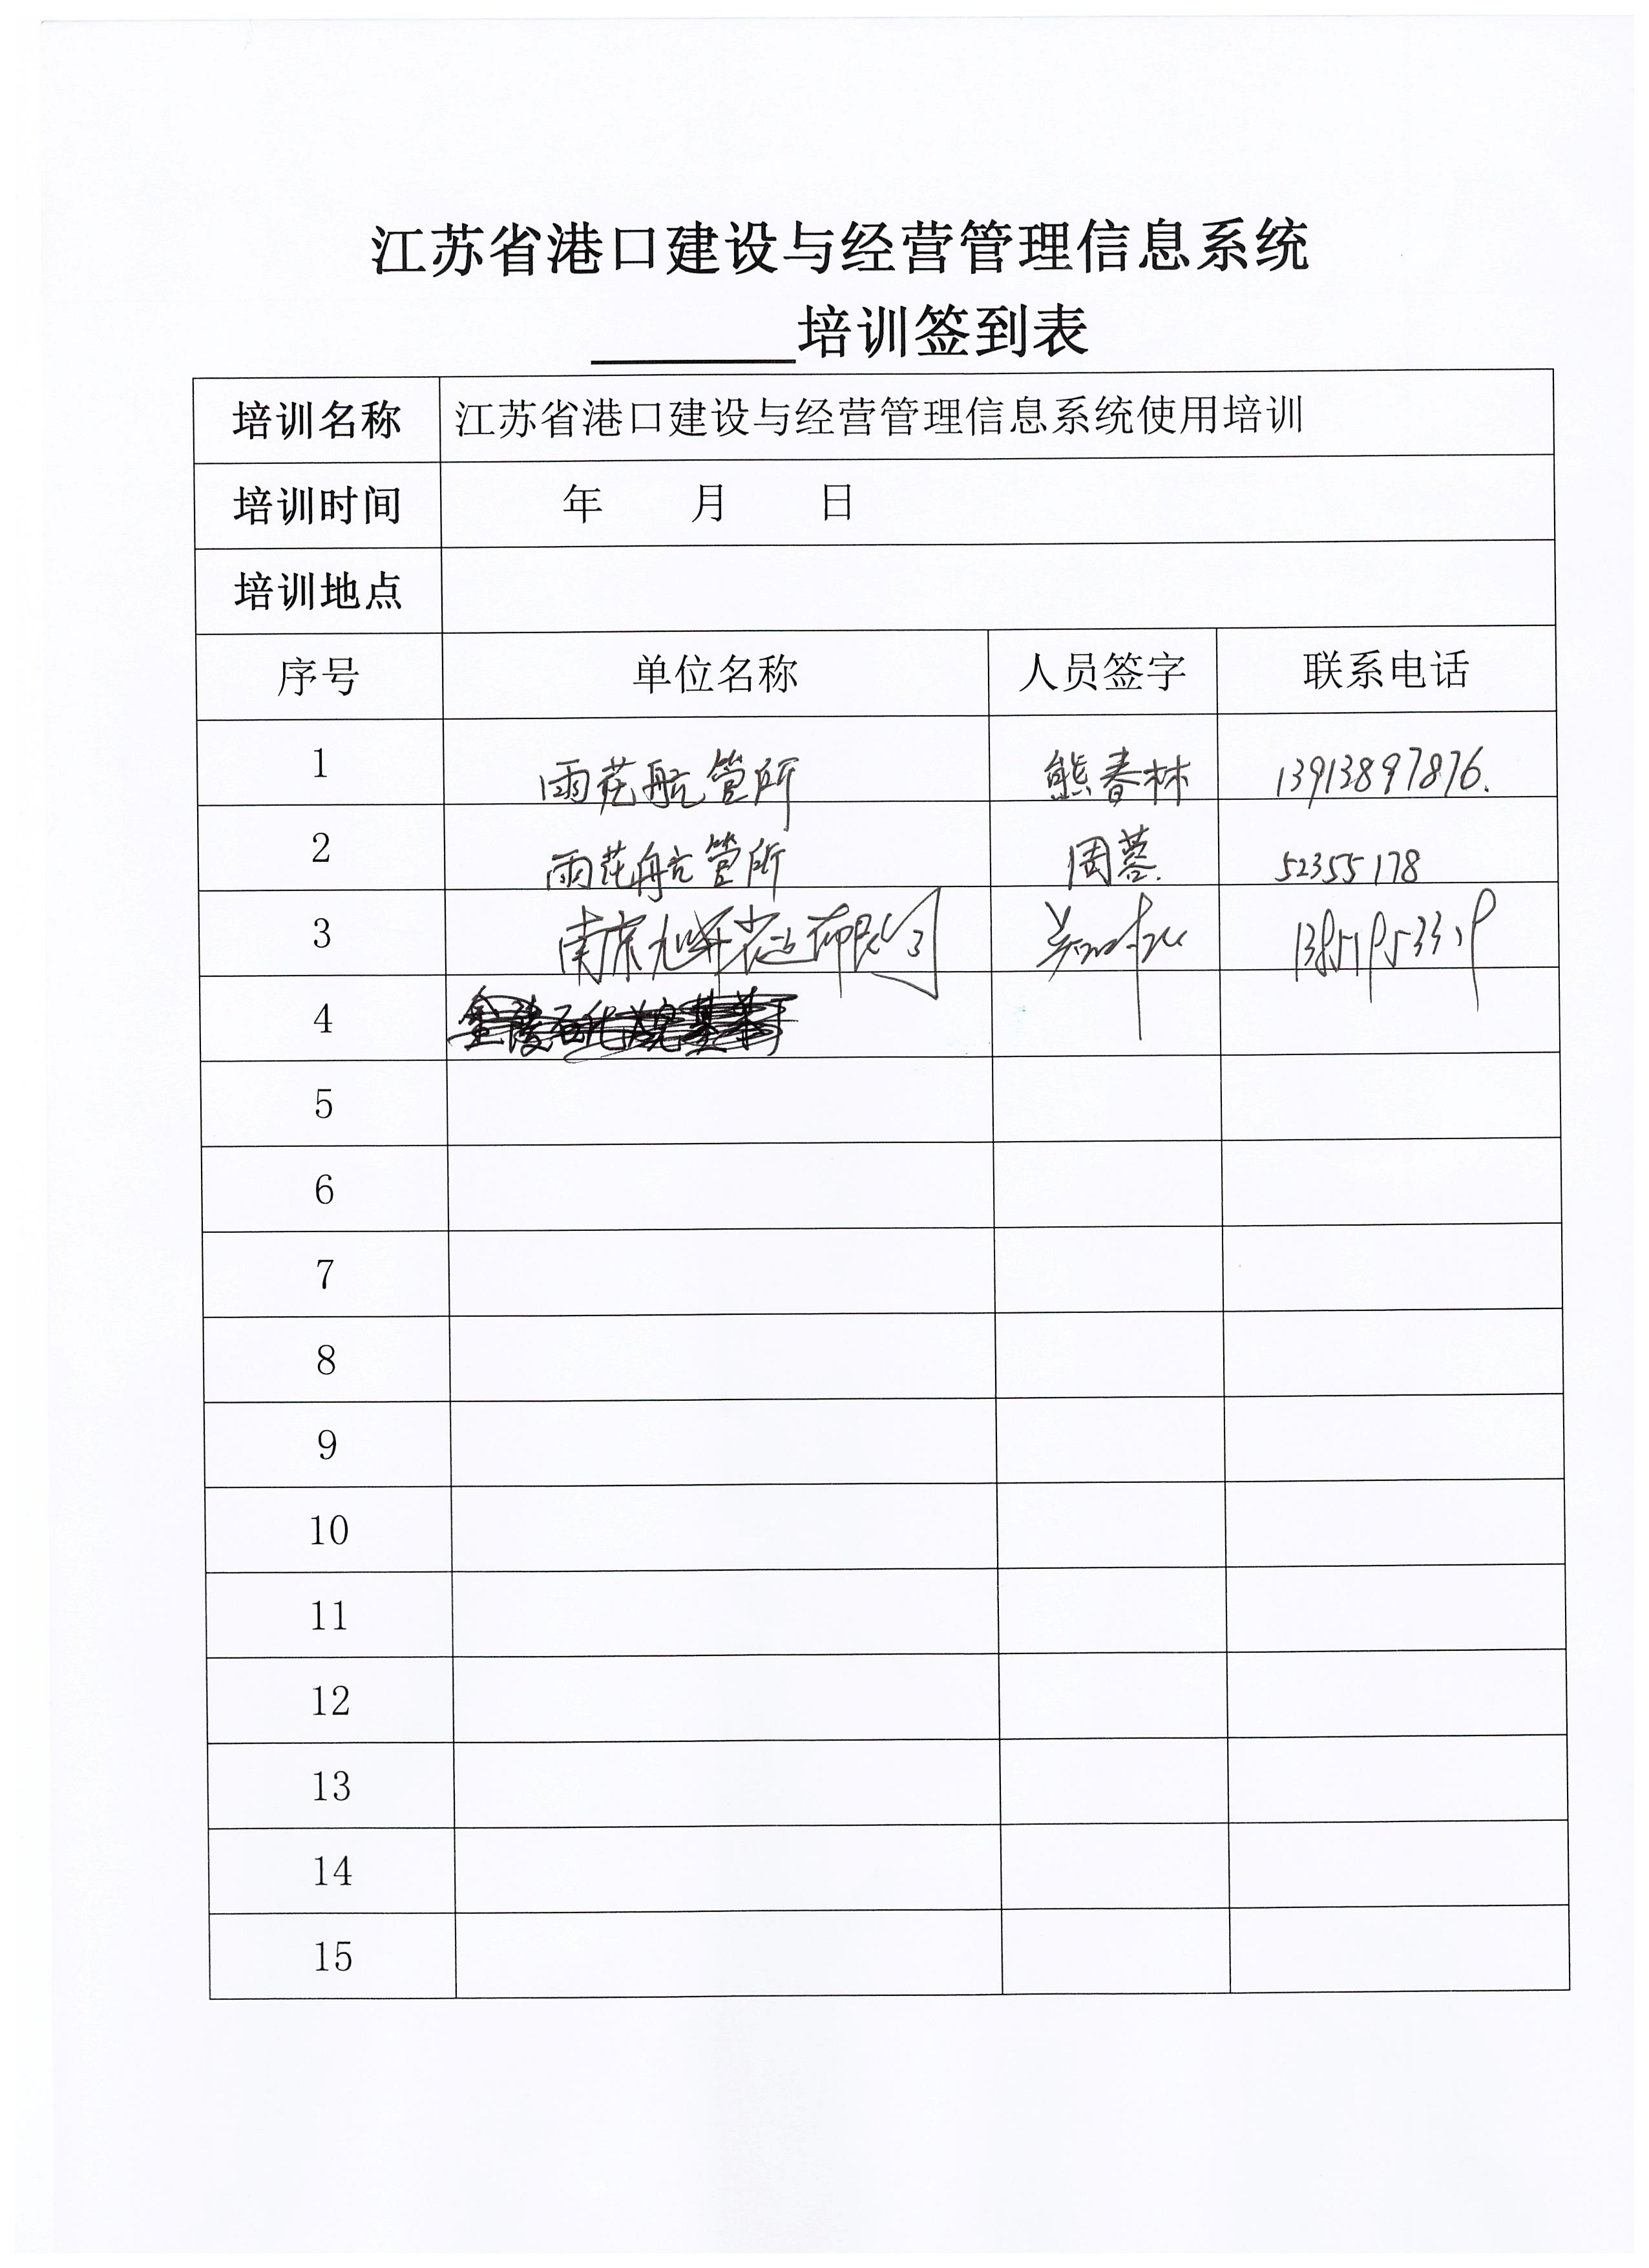 江苏省港口建设与经营管理信息系统
______培训签到表
培训名称 江苏省港口建设与经营管理信息系统使用培训
培训时间 年 月 日
培训地点
序号 单位名称 人员签字 联系电话
1 雨花航管所 熊春林 13913897876.
2 雨花航管所 周蓉. 52355178
3 南京
4
5
6
7
8
9
10
11
12
13
14
15